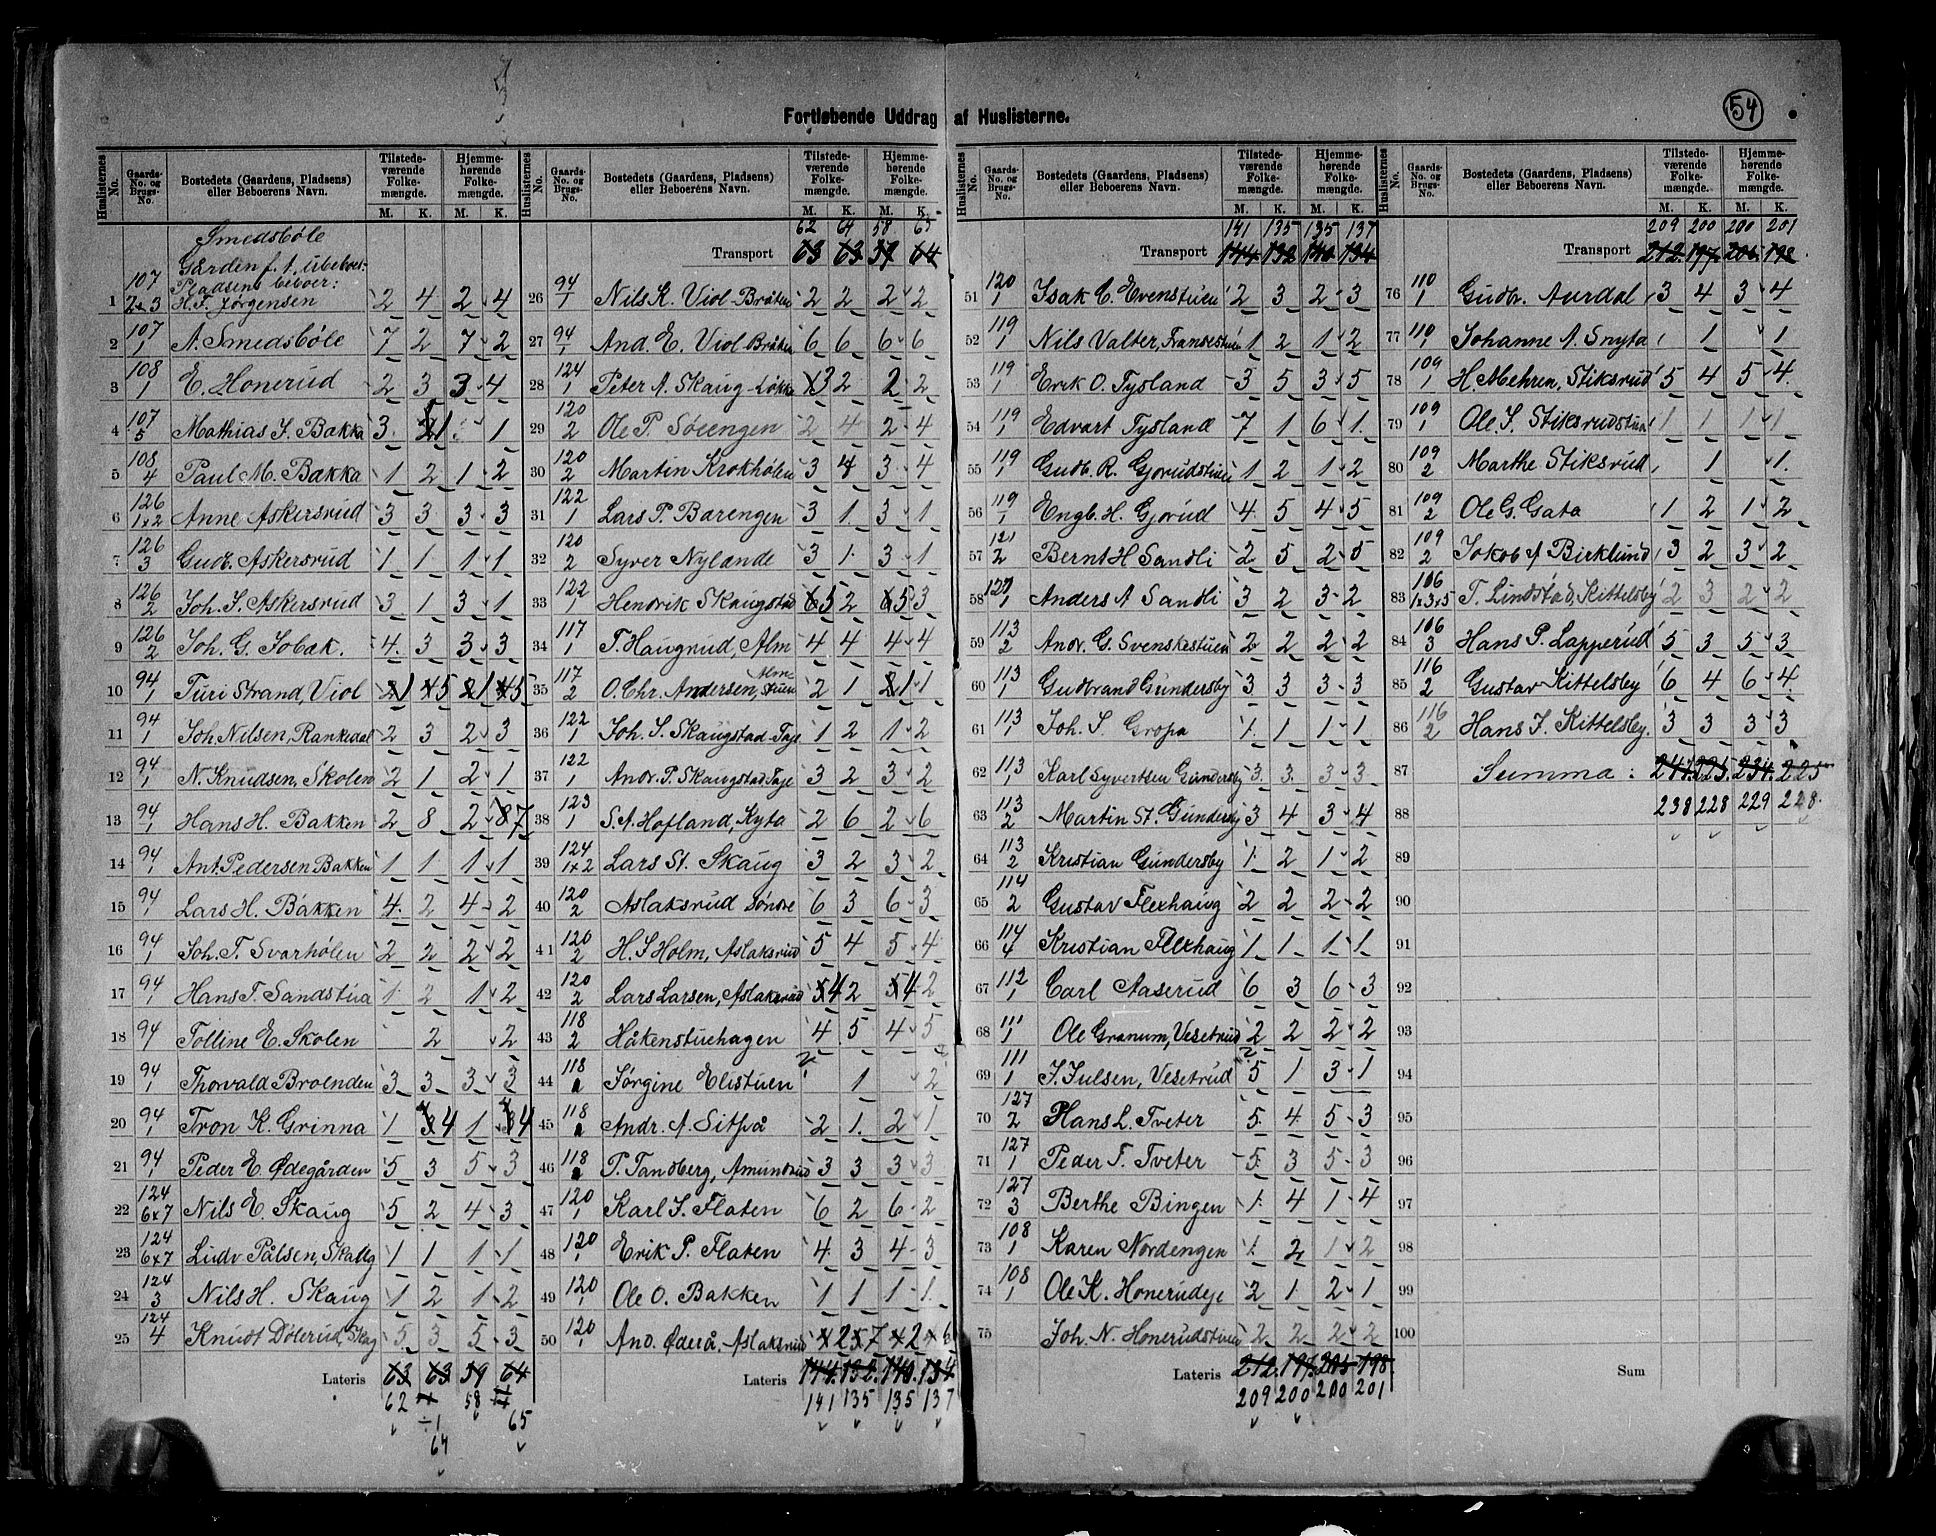 54
Fortløbende Uddrag af Huslisterne.
Huslisternes No. Gaards-No. og Brugs-No. Bostedets (Gaardens, Pladsens) eller Beboerens Navn. Tilstedeværende Folkemængde. M. K. Hjemmehørende Folkemængde. M. K.
Smedsbøle
Gården f. t. ubeboet.
Pladsens beboer:
1 107 2 3 H. J. Jørgensen 2 4 2 4
2 107 1 A. Smedsbøle 7 2 7 2
3 108 1 E. Honerud 2 3 3 4
4 107 5 Mathias J. Bakka 3 1 1
5 108 4 Paul M. Bakka 1 2 1 2
6 126 1x2 Anne Askersrud 3 3 3 3
7 126 3 Gudb. Askersrud 1 1 1 1
8 126 2 Joh. J. Askersrud 3 1 3 1
9 126 2 Joh. G. Fobæk. 4 3 3 3
10 94 1 Turi Strand, Viol 1 5 1 5
11 94 1 Joh. Nilsen, Rankedal 2 3 2 3
12 94 1 N. Knudsen, Skolen 2 1 2 1
13 94 1 Hans H. Bakken 2 8 2 7
14 94 1 Ant. Pedersen Bakken 1 1 1 1
15 94 1 Lars H. Bakken 4 2 4 2
16 94 1 Joh. T. Svarhølen 2 2 2 2
17 94 1 Hans T. Sandstua 1 2 1 2
18 94 1 Tolline E. Skolen 2 2
19 94 1 Thorvald Broenden 3 3 3 3
20 94 1 Tron K. Grinna 1 4 1 4
21 94 1 Peder E. Ødegården 5 3 5 3
22 124 6x7 Nils E. Skaug 5 2 4 3
23 124 6x7 Ludv Pålsen, Skaug 1 1 1 1
24 124 3 Nils H. Skaug 1 2 1 2
25 124 4 Knudt Dølerud, Skag 5 3 5 3
Lateris 63 63 59 64
62 58 65
÷1
64
Huslisternes No. Gaards-No. og Brugs-No. Bostedets (Gaardens, Pladsens) eller Beboerens Navn. Tilstedeværende Folkemængde. M. K. Hjemmehørende Folkemængde. M. K.
62 64 58 65
Transport 63 63 59 64
26 94 1 Nils K. Viol-Bråten 2 2 2 2
27 94 1 And. E. Viol-Bråten 6 6 6 6
28 124 1 Peter A. Skaug-Løkke 3 2 2 2
29 120 2 Ole P. Søiengen 2 4 2 4
30 120 2 Martin Krokhølen 3 4 3 4
31 122 1 Lars P. Barengen 3 1 3 1
32 120 2 Syver Nylande 3 1 3 1
33 122 1 Hendrik Skaugstad 5 2 5 3
34 117 1 T. Haugrud, Alm 4 4 4 4
35 117 2 O. Chr. Andersen, Almestuen 2 1 1 1
36 122 1 Joh. S. Skaugstad-Eje 1 2 1 2
37 122 1 Andr. P. Skaugstad Eje 3 2 3 2
38 123 1 S. A. Hofland, Kyta 2 6 2 6
39 124 1x2 Lars St. Skaug 3 2 3 2
40 120 2 Aslaksrud Søndre 6 3 6 3
41 120 2 H. S Holm, Aslaksrud 5 4 5 4
42 120 2 Lars Larsen, Aslaksrud 4 2 4 2
43 118 2 Håkenstuehagen 4 5 4 5
44 118 Jørgine Elistuen 1 2
45 118 Andr. A. Sitpå 2 1 2 1
46 118 P. Tandberg, Amundrud 3 3 3 3
47 120 1 Karl J. Flaten 6 2 6 2
48 120 1 Erik P. Flaten 4 3 4 3
49 120 1 Ole O. Bakken 1 1 1 1
50 120 1 And. Øderå, Aslaksrud 2 7 2 6
Lateris 144 132 140 134
141 135 135 137
Huslisternes No. Gaards-No. og Brugs-No. Bostedets (Gaardens, Pladsens) eller Beboerens Navn. Tilstedeværende Folkemængde. M. K. Hjemmehørende Folkemængde. M. K.
141 135 135 137
Transport 144 132 140 134
51 120 1 Isak C. Evenstuen 2 3 2 3
52 119 1 Nils Valter, Fransestuen 1 2 1 2
53 119 1 Erik O. Tysland 3 5 3 5
54 119 1 Edvart Tysland 7 1 6 1
55 119 1 Gudb. R. Gjorudstuen 1 2 1 2
56 119 1 Engb. H. Gjorud 4 5 4 5
57 121 2 Bernt H Sandli 2 5 2 5
58 122 1 Anders A Sandli 3 2 3 2
59 113 2 Andr. G. Svenskestuen 2 2 2 2
60 113 1 Gudbrand Gundersby 3 3 3 3
61 113 1 Joh. S. Gropa 1 1 1 1
62 113 1 Karl Syvertsen Gundersby 3 3 3 3
63 113 2 Martin St. Gundersby 3 4 3 4
64 113 2 Kristian Gundersby 1 2 1 2
65 114 2 Gustav Flexhaug 2 2 2 2
66 114 4 Kristian Flexhaug 1 1 1 1
67 112 1 Carl Aaserud 6 3 6 3
68 111 1 Ole Granum, Vesetrud 2 2 2 2
69 111 1 J. Julsen, Vesetrud 5 1 3 1
70 127 2 Hans L. Tveter 5 4 5 3
71 127 1 Peder T. Tveter 5 3 5 3
72 127 3 Berthe Bingen 1 4 1 4
73 108 1 Karen Nordengen 1 2 1 2
74 108 1 Ole K. Honerudeje 2 1 2 1
75 Joh. N. Honerudstuen 2 2 2 2
Lateris 212 197 205 198
209 200 200 201
Huslisternes No. Gaards-No. og Brugs-No. Bostedets (Gaardens, Pladsens) eller Beboerens Navn. Tilstedeværende Folkemængde. M. K. Hjemmehørende Folkemængde. M. K.
209 200 200 201
Transport 212 197 205 198
76 110 1 Gudbr. Aurdal 3 4 3 4
77 110 1 Johanne A. Snyta 1 1
78 109 1 H. Mehren, Stiksrud 5 4 5 4
79 109 1 Ole J. Stiksrudstua 1 1 1 1
80 109 2 Marthe Stiksrud 1 1
81 109 2 Ole G. Gata 1 2 1 2
82 109 2 Jokob A Birklund 3 2 3 2
83 116 1x3x5 T. Lindstad, Kittelsby 2 3 2 2
84 116 3 Hans P. Lapperud 5 3 5 3
85 116 2 Gustav Kittelsby 6 4 6 4
86 116 2 Hans J. Kittelsby. 3 3 3 3
87 Summa: 241 225 234 225
88 238 228 229 228
89
90
91
92
93
94
95
96
97
98
99
100
Sum